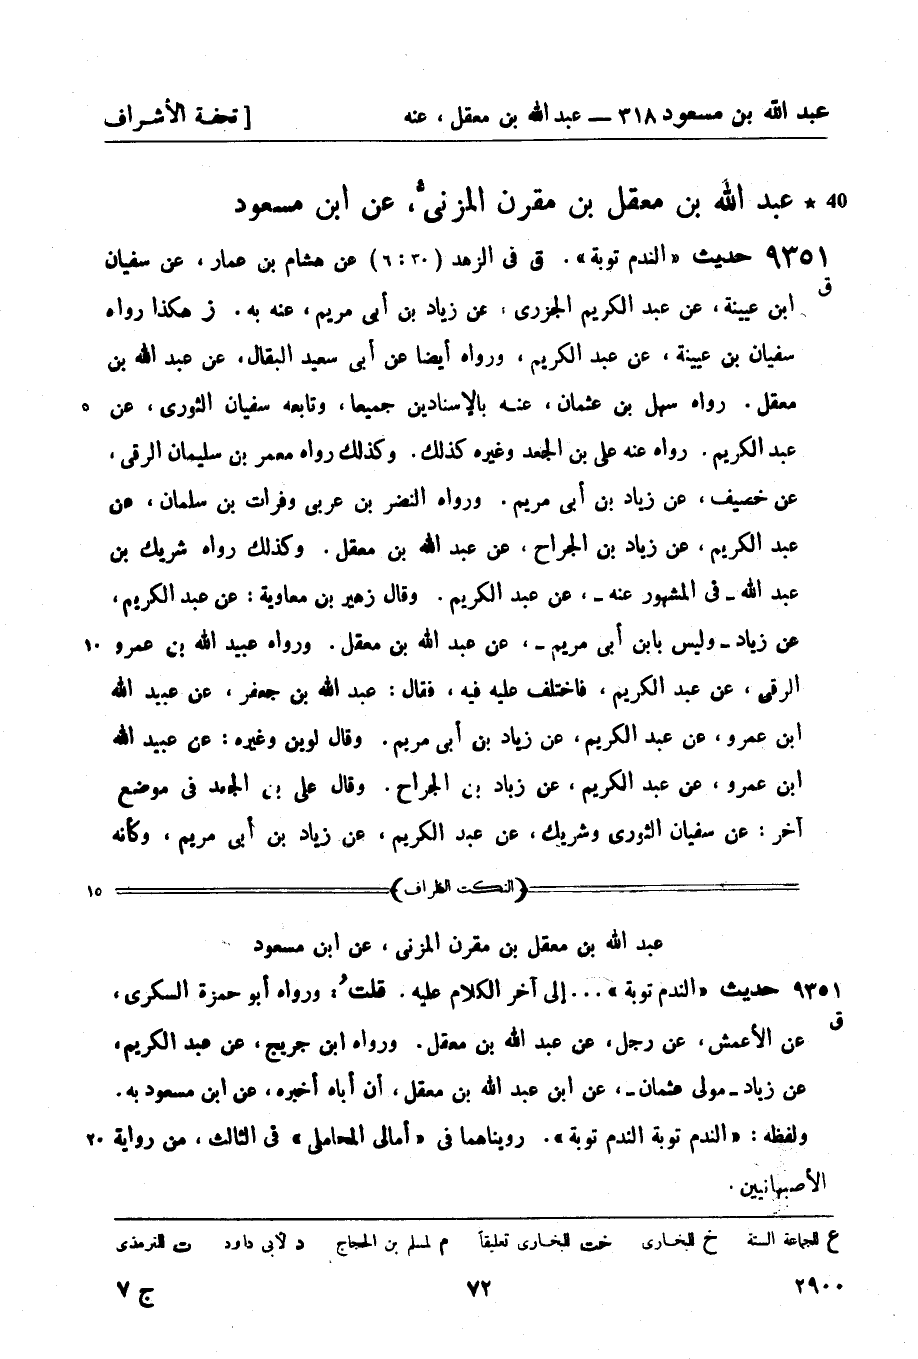 عبد الله بن مسعود ٣١٨ — عبد الله بن معقل ، عنه [ تحفـة الأشـراف
40 * عبد الله بن معقل بن مقرن المزنى ، عن ابن مسعود
٩٣٥١ حديث «الندم توبة» . ق فى الزهد (٣٠ : ٦) عن هشام بن عمار ، عن سفيان
ق
ابن عيينة ، عن عبد الكريم الجزرى ، عن زياد بن أبى مريم ، عنه به . ز هكذا رواه
سفيان بن عيينة ، عن عبد الكريم ، ورواه أيضا عن أبى سعيد البقال ، عن عبد الله بن
معقل . رواه سهل بن عثمان ، عنـه بالإسنادين جميعا ، وتابعه سفيان الثورى ، عن ٥
عبد الكريم . رواه عنه على بن الجعد وغيره كذلك . وكذلك رواه معمر بن سليمان الرقى ،
عن خصيف ، عن زياد بن أبى مريم . ورواه النضر بن عربى وفرات بن سلمان ، عن
عبد الكريم ، عن زياد بن الجراح ، عن عبد الله بن معقل . وكذلك رواه شريك بن
عبد الله ـ فى المشهور عنه ـ ، عن عبد الكريم . وقال زهير بن معاوية : عن عبد الكريم ،
عن زياد ـ وليس بابن أبى مريم ـ ، عن عبد الله بن معقل . ورواه عبيد الله بن عمرو ١٠
الرقى ، عن عبد الكريم ، فاختلف عليه فيه ، فقال : عبد الله بن جعفر ، عن عبيد الله
ابن عمرو ، عن عبد الكريم ، عن زياد بن أبى مريم . وقال لوين وغيره : عن عبيد الله
ابن عمرو ، عن عبد الكريم ، عن زياد بن الجراح . وقال على بن الجعد فى موضع
آخر : عن سفيان الثورى وشريك ، عن عبد الكريم ، عن زياد بن أبى مريم ، وكأنه
(النكت الظراف) ١٥
عبد الله بن معقل بن مقرن المزنى ، عن ابن مسعود
٩٣٥١ حديث «الندم توبة» ... إلى آخر الكلام عليه . قلتُ : ورواه أبو حمزة السكرى ،
ق
عن الأعمش ، عن رجل ، عن عبد الله بن معقل . ورواه ابن جريج ، عن عبد الكريم ،
عن زياد ـ مولى عثمان ـ ، عن ابن عبد الله بن معقل ، أن أباه أخبره ، عن ابن مسعود به .
ولفظه : «الندم توبة الندم توبة» . رويناهما فى «أمالى المحاملى» فى الثالث ، من رواية ٢٠
الأصبهانيين .
ع للجماعة الستة خ للبخارى خت للبخارى تعليقاً م لمسلم بن الحجاج د لأبى داود ت للترمذى
٢٩٠٠ ٧٢ ج ٧